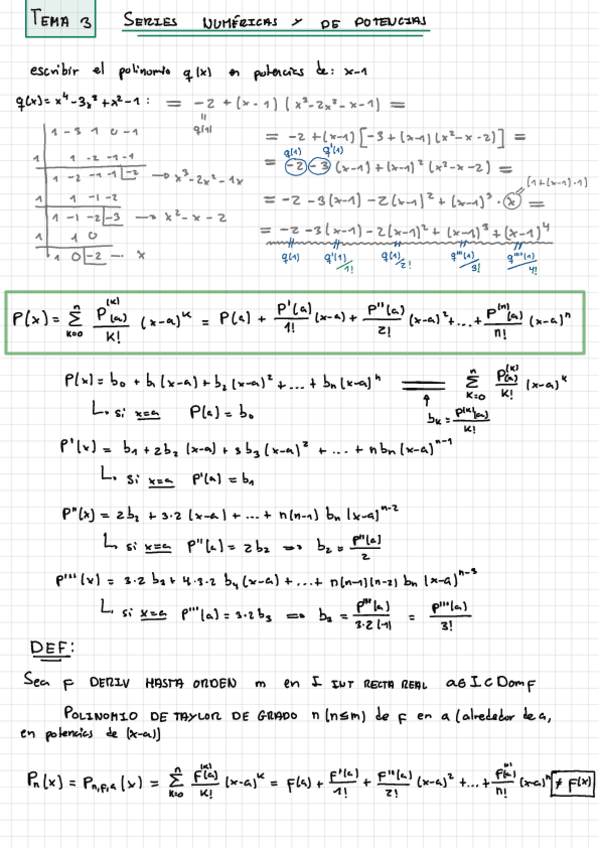 TEMA 3 SERIES NUMÉRICAS Y DE POTENCIAS
escribir el polinomio q(x) en potencias de: x-1
q(x)= x⁴-3x³+x²-1 : = -2 + (x-1) (x³-2x²-x-1) =
q(1)
1 -3 1 0 -1
1 1 -2 -1 -1
1 -2 -1 -1 -2 → x³-2x²-1x
1 1 -1 -2
1 -1 -2 -3 → x²-x-2
1 1 0
1 0 -2 → x
= -2 + (x-1) [-3+(x-1)(x²-x-2)] =
q(1) q'(1)
= -2 -3 (x-1) + (x-1)² (x²-x-2) =
(1+(x-1)·1)
= -2 -3(x-1) -2(x-1)² + (x-1)³ · x =
= -2 -3(x-1) -2(x-1)² + (x-1)³ + (x-1)⁴
q(1) q'(1)/1! q(1)/2! q'''(1)/3! q''''(1)/4!
P(x) = Σ_{k=0}^{n} P^{(k)}(a)/k! (x-a)^k = P(a) + P'(a)/1! (x-a) + P''(a)/2! (x-a)² + ... + P^{(n)}(a)/n! (x-a)^n
P(x) = b₀ + b₁(x-a) + b₂(x-a)² + ... + bₙ(x-a)^n = Σ_{k=0}^{n} P^{(k)}(a)/k! (x-a)^k
↑
b_k = P^{(k)}(a)/k!
↳ si x=a P(a) = b₀
P'(x) = b₁ + 2b₂ (x-a) + 3b₃ (x-a)² + ... + nbₙ(x-a)^{n-1}
↳ si x=a P'(a) = b₁
P''(x) = 2b₂ + 3·2 (x-a) + ... + n(n-1) bₙ (x-a)^{n-2}
↳ si x=a P''(a) = 2b₂ ⇒ b₂ = P''(a)/2
P'''(x) = 3·2 b₃ + 4·3·2 b₄ (x-a) + ... + n(n-1)(n-2) bₙ (x-a)^{n-3}
↳ si x=a P'''(a) = 3·2b₃ ⇒ b₃ = P'''(a)/3·2(·1) = P'''(a)/3!
DEF:
Sea F DERIV HASTA ORDEN m en I INT RECTA REAL a∈I⊂Dom F
POLINOMIO DE TAYLOR DE GRADO n (n≤m) de F en a (alrededor de a,
en potencias de (x-a))
Pₙ(x) = P_{n,F,a}(x) = Σ_{k=0}^{n} F^{(k)}(a)/k! (x-a)^k = F(a) + F'(a)/1! + F''(a)/2! (x-a)² + ... + F^{(n)}(a)/n! (x-a)^n ≠ F(x)